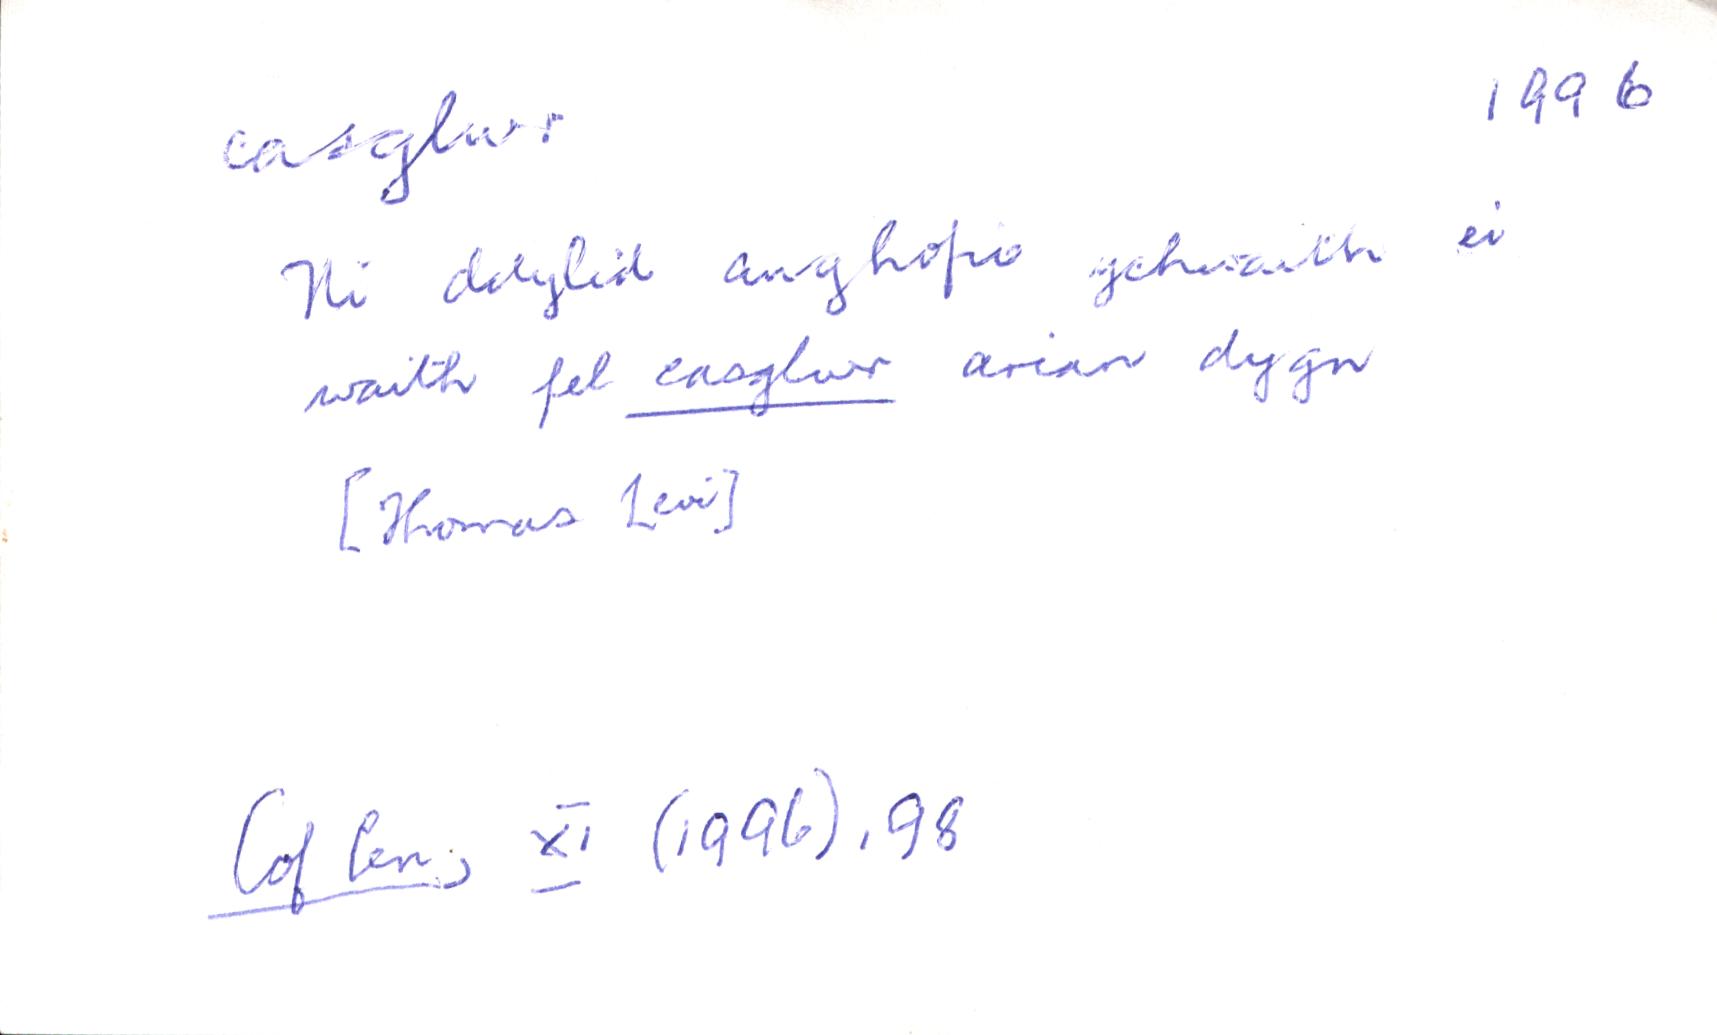 casglwr 1996
Ni ddylid anghofio ychwaith ei
waith fel casglwr arian dygn
[Thomas Levi]
Cof Cen, XI (1996), 98